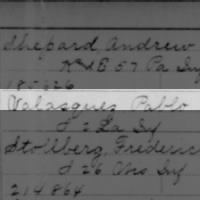 Shepard, Andrew
K & B 57 Pa Inf
185026
Valasques Pablo
I 2 La Inf
Stollberg, Frederic
I 26 Wis Inf
214864